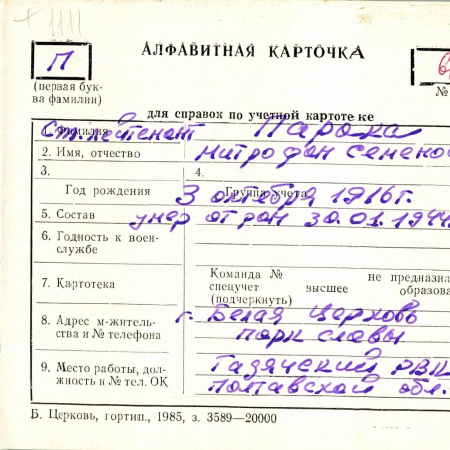 + 1111
П
АЛФАВИТНАЯ КАРТОЧКА
(первая бук-
ва фамилии)
№
для справок по учетной картотеке
1. Фамилия Ст. лейтенант Пароха
2. Имя, отчество Митрофан Семено
3. 4.
Год рождения Группа учета 3 октября 1916 г.
5. Состав умер от ран 30.01.1944
6. Годность к воен-
службе
7. Картотека
Команда № не предназна
спецучет высшее образова
(подчеркнуть)
8. Адрес м-житель-
ства и № телефона
г. Белая Церковь
парк славы
9. Место работы, дол-
жность и № тел. ОК
Гадячский РВК
Полтавской обл.
Б. Церковь, гортип., 1985, з. 3589—20000